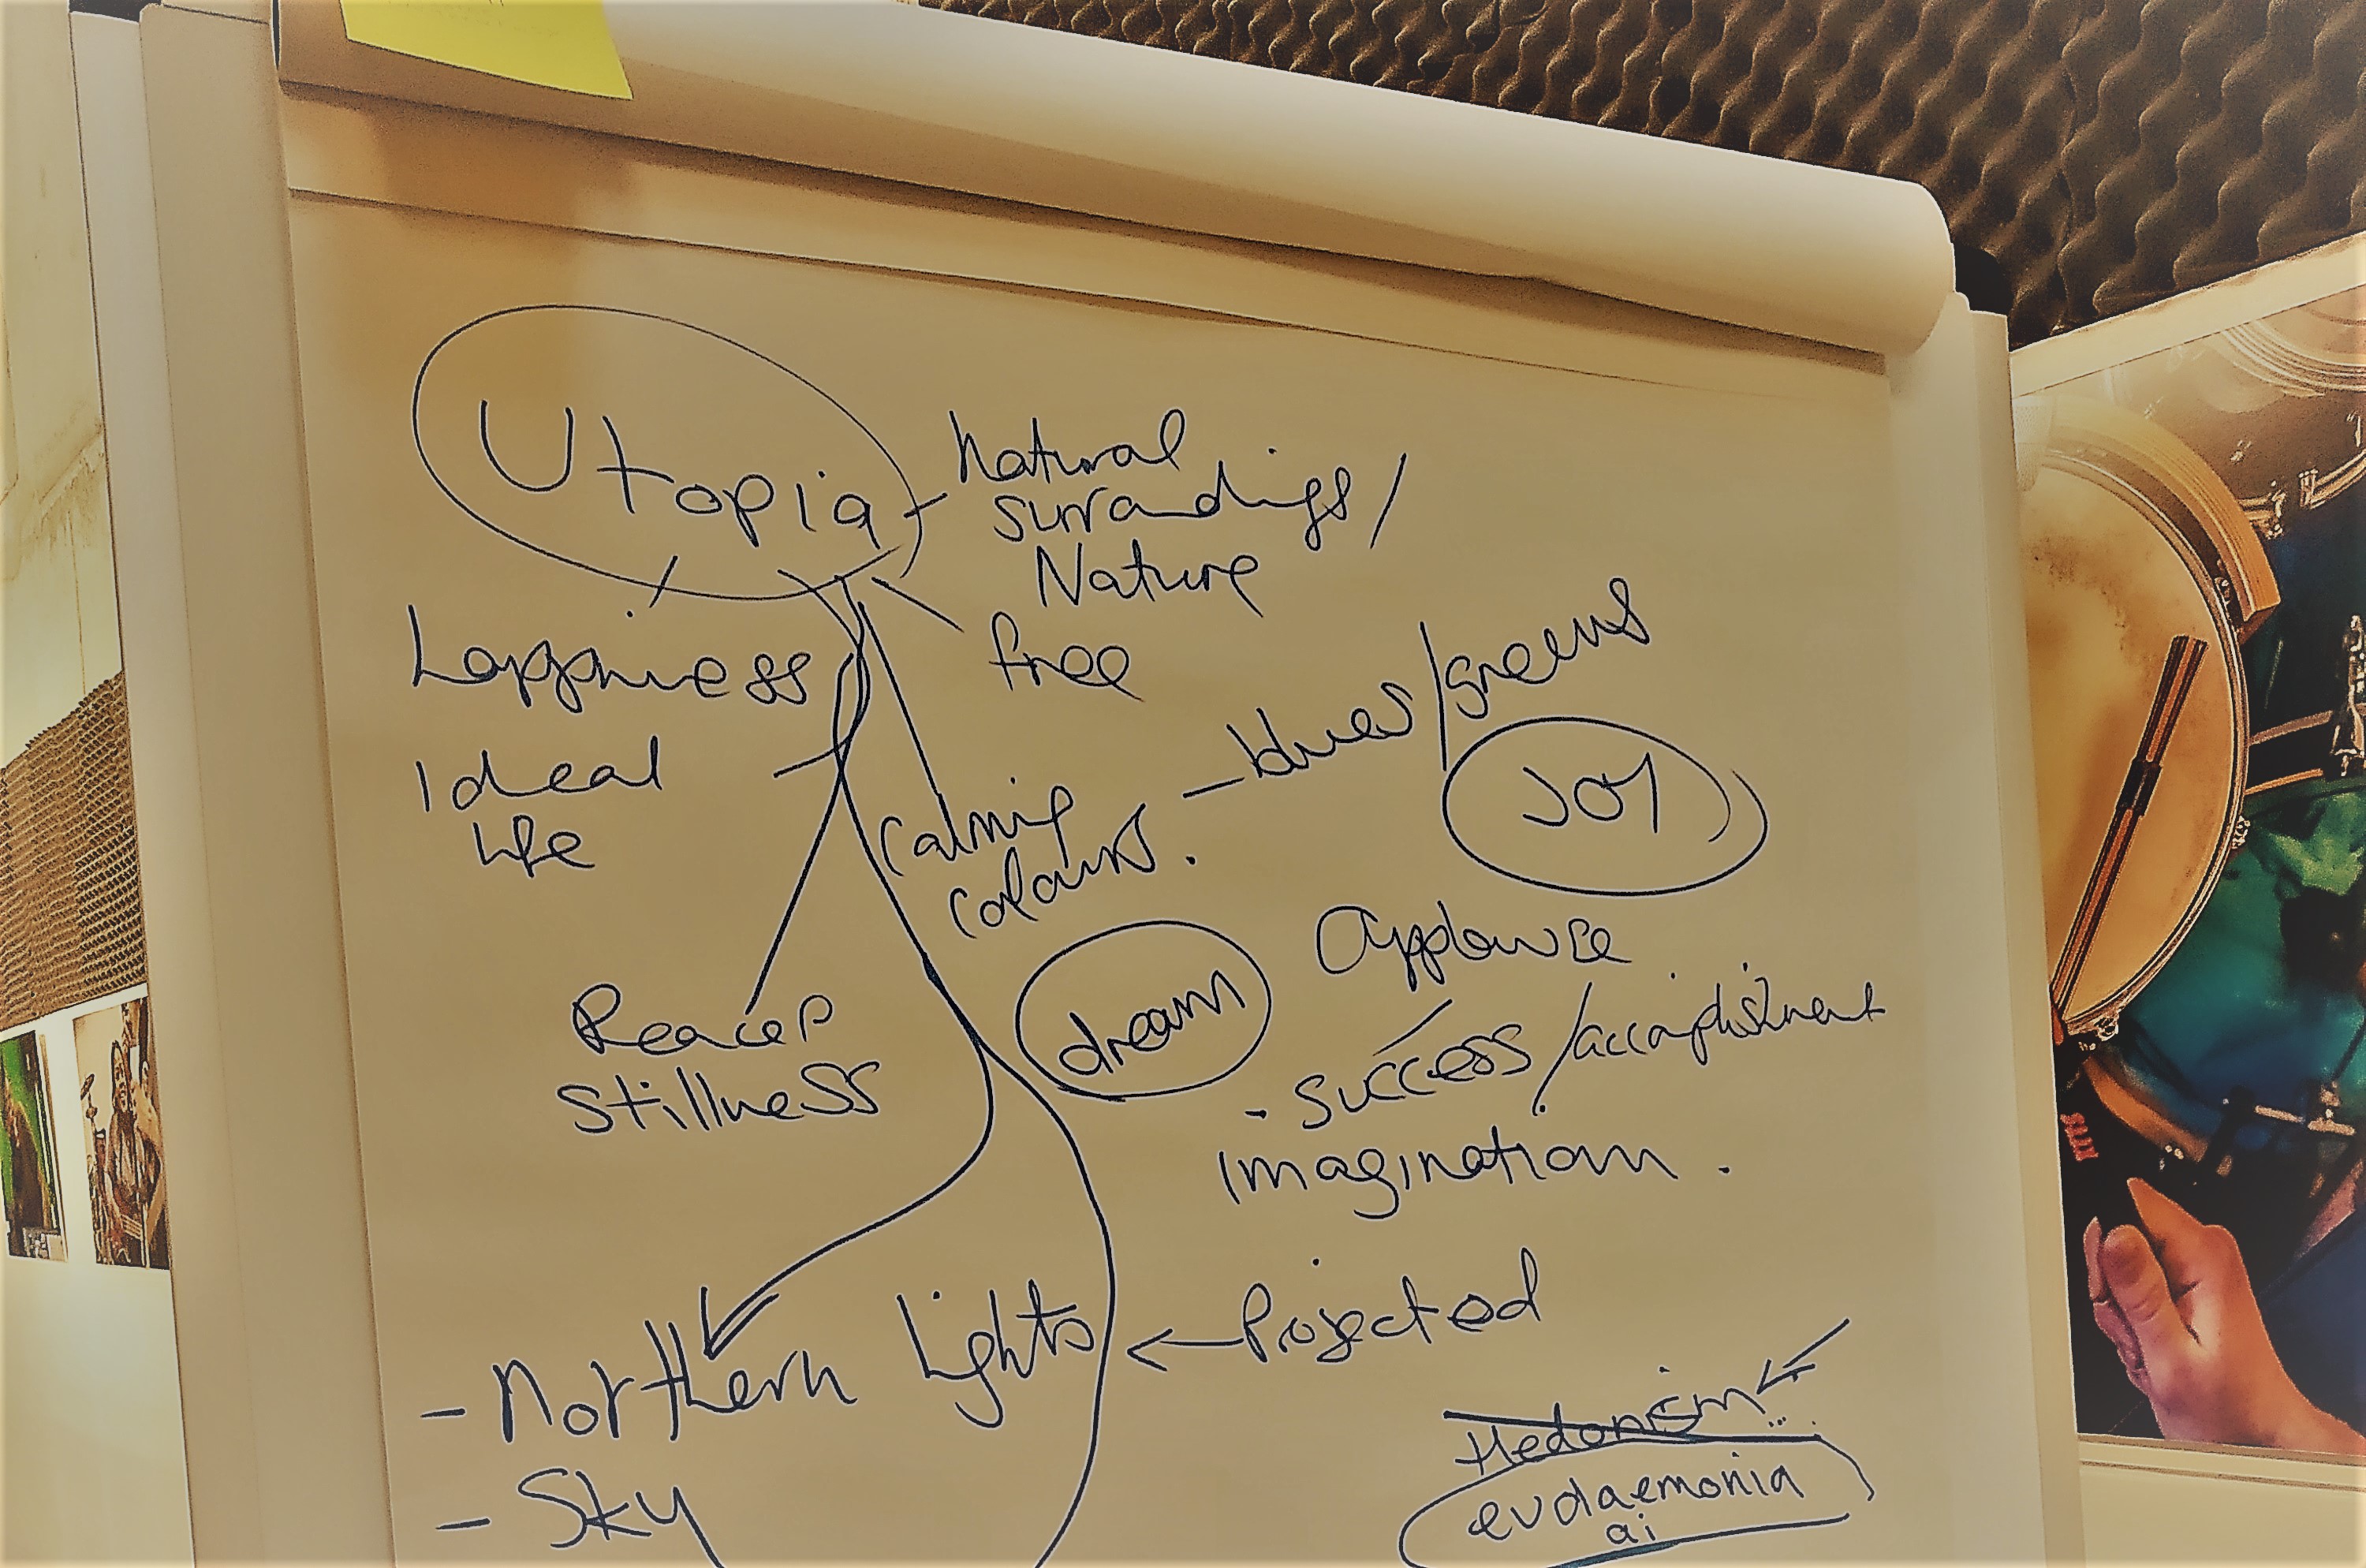 Utopia
- Natural
surroundings/
Nature
happiness
free
Ideal
life
calming
colours.
- blues/greens
JOY
Applause
dream
Peace
stillness
- success/accomplishment
imagination.
- Northern Lights
← Projected
- Sky
Hedonism...
eudaemonia
ai